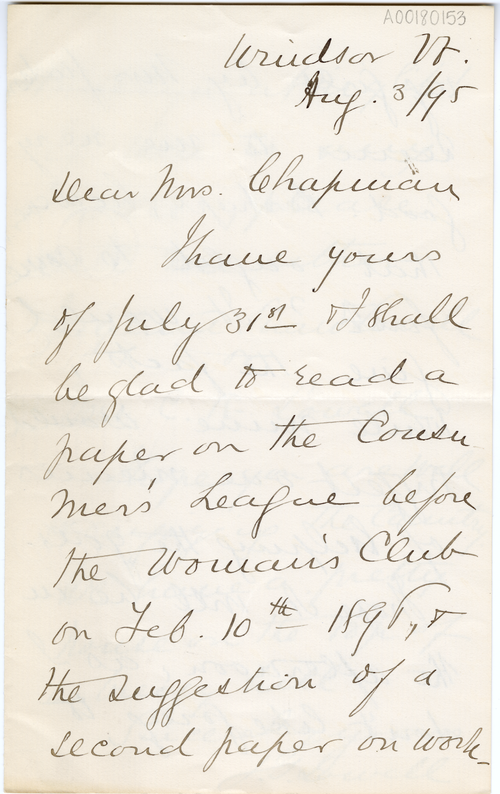 A00180153
Windsor Vt.
Aug. 3/95
Dear Mrs. Chapman
I have yours
of July 31st & I shall
be glad to read a
paper on the Consu
mer's League before
the Woman's Club
on Feb. 10th &
the suggestion of a
second paper on work-